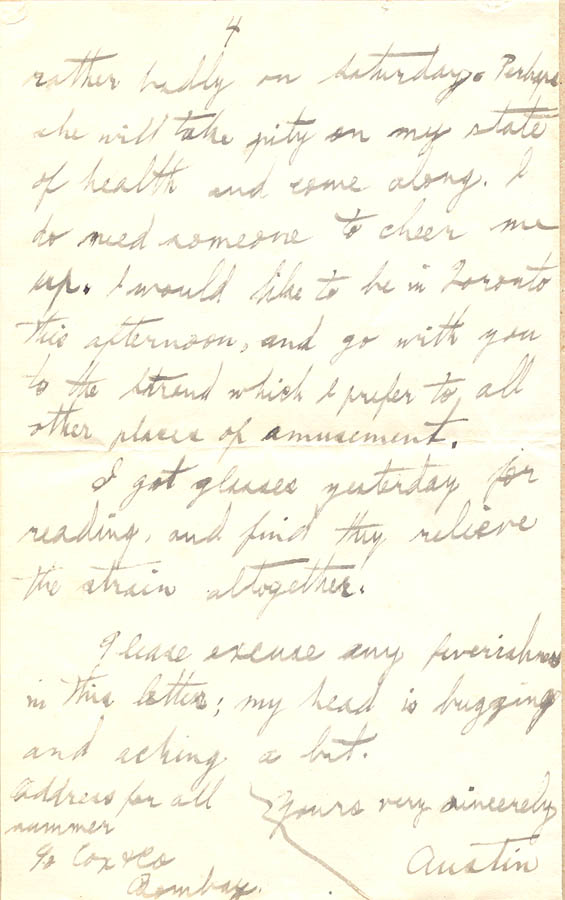 4
rather badly on Saturday. Perhaps
she will take pity on my state
of health and come along. I
do need someone to cheer me
up. I would like to be in Toronto
this afternoon, and go with you
to the Strand which I prefer to all
other places of amusement.
I got glasses yesterday for
reading, and find they relieve
the strain altogether.
Please excuse any feverishness
in this letter; my head is buzzing
and aching a bit.
Yours very sincerely
Austin
Address for all
summer
c/o Cox & Co
Bombay.